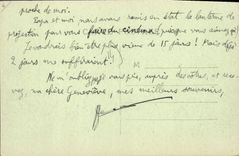 proche de moi.
Papa et moi nous avons remis en état la lanterne de
projection pour vous (faire du cinéma, puisque vous aimez ça)
Je voudrais bien être plus vieux de 15 jours ! Mais déjà
2 jours me suffiraient !
Ne m'oubliez pas, auprès des vôtres, et
ma chère Geneviève, mes meilleurs souvenirs,